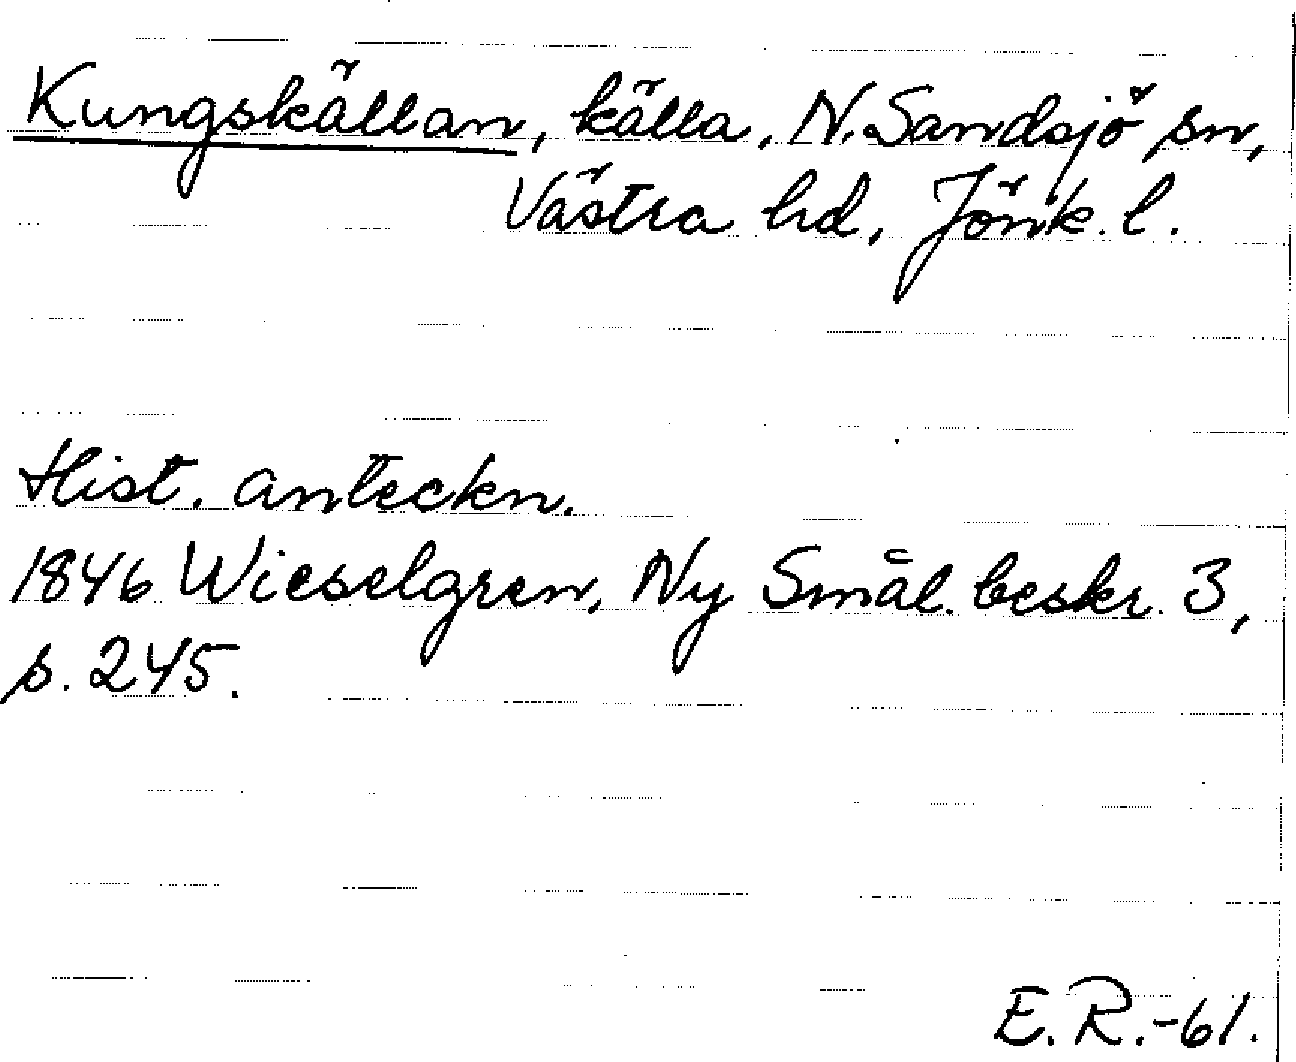 Kungskällan, källa, N. Sandsjö sn,
Västra hd, Jönk. l.
Hist. anteckn.
1846 Wieselgren, Ny Smål. beskr. 3,
s. 245.
E. R.-61.